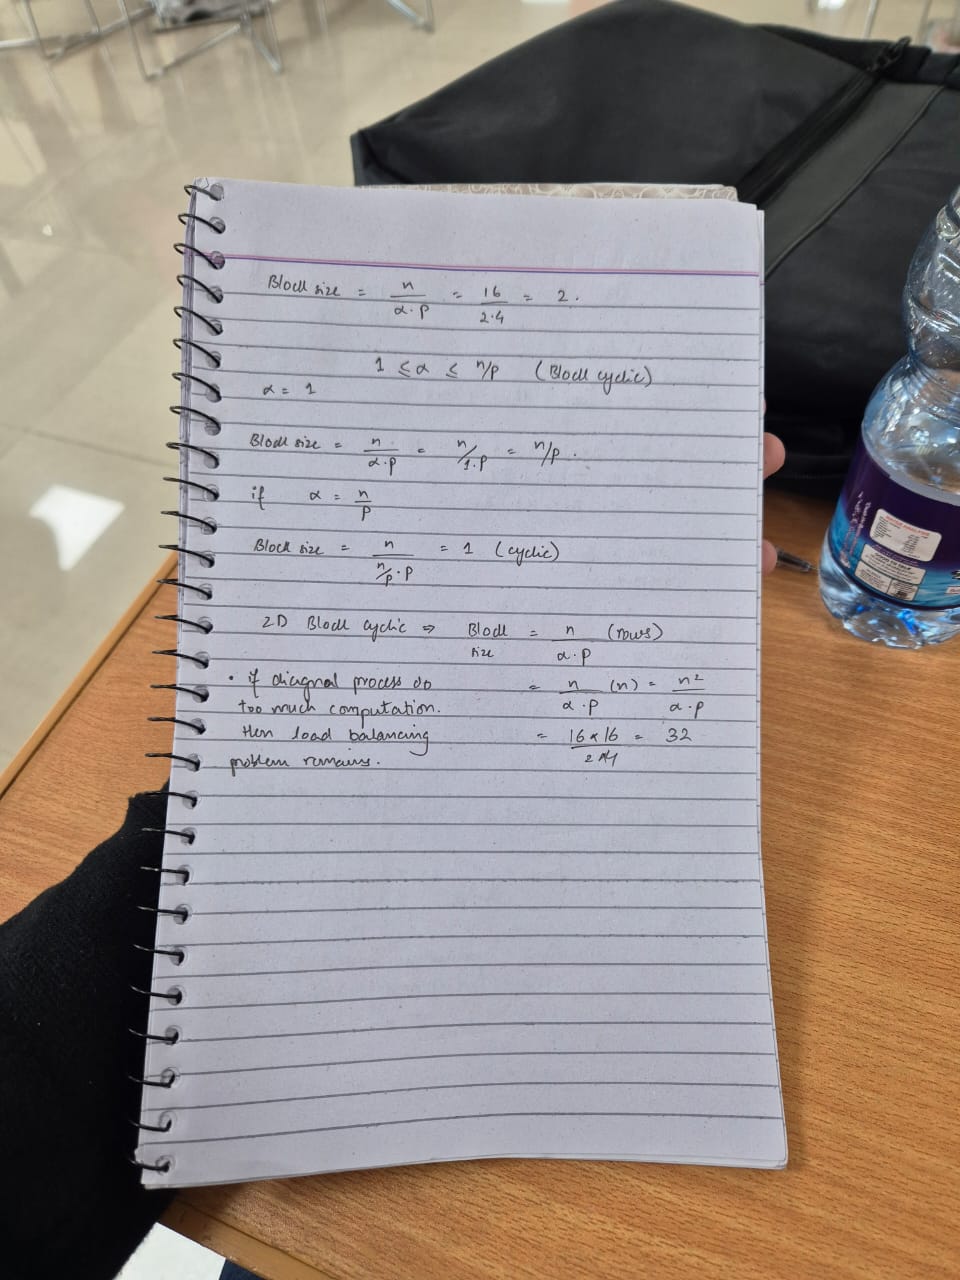 Block size = n / α·p = 16 / 2·4 = 2.
1 ≤ α ≤ n/p (Block cyclic)
α = 1
Block size = n / α·p = n/1·p = n/p.
if α = n / p
Block size = n / n/p·p = 1 (cyclic)
2D Block cyclic ⇒ Block size = n / α·p (rows)
• if diagnal process do
too much computation.
then load balancing
problem remains.
= n / α·p (n) = n² / α·p
= 16×16 / 2×4 = 32